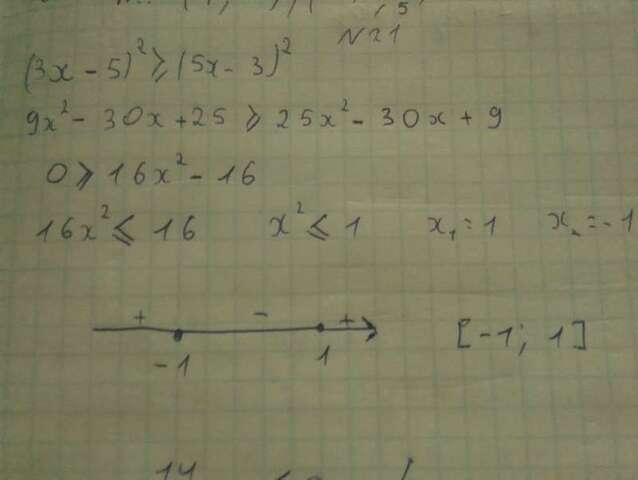 N21
(3x - 5)² ⩾ (5x - 3)²
9x² - 30x + 25 ⩾ 25x² - 30x + 9
0 ⩾ 16x² - 16
16x² ⩽ 16 x² ⩽ 1 x₁ = 1 x₂ = -1
+ - +
-1 1 [-1; 1]
14